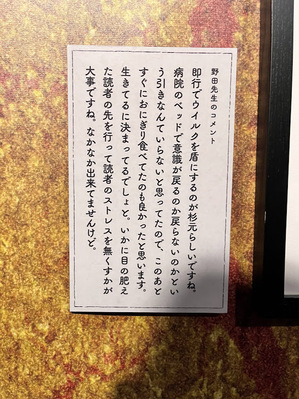 野田先生のコメント
即行でウイルクを盾にするのが杉元らしいですね。
病院のベッドで意識が戻るのか戻らないのかとい
う引きなんていらないと思ってたので、このあと
すぐにおにぎり食べてたのも良かったと思います。
生きてるに決まってるでしょと。いかに目の肥え
た読者の先を行って読者のストレスを無くすかが
大事ですね。なかなか出来てませんけど。